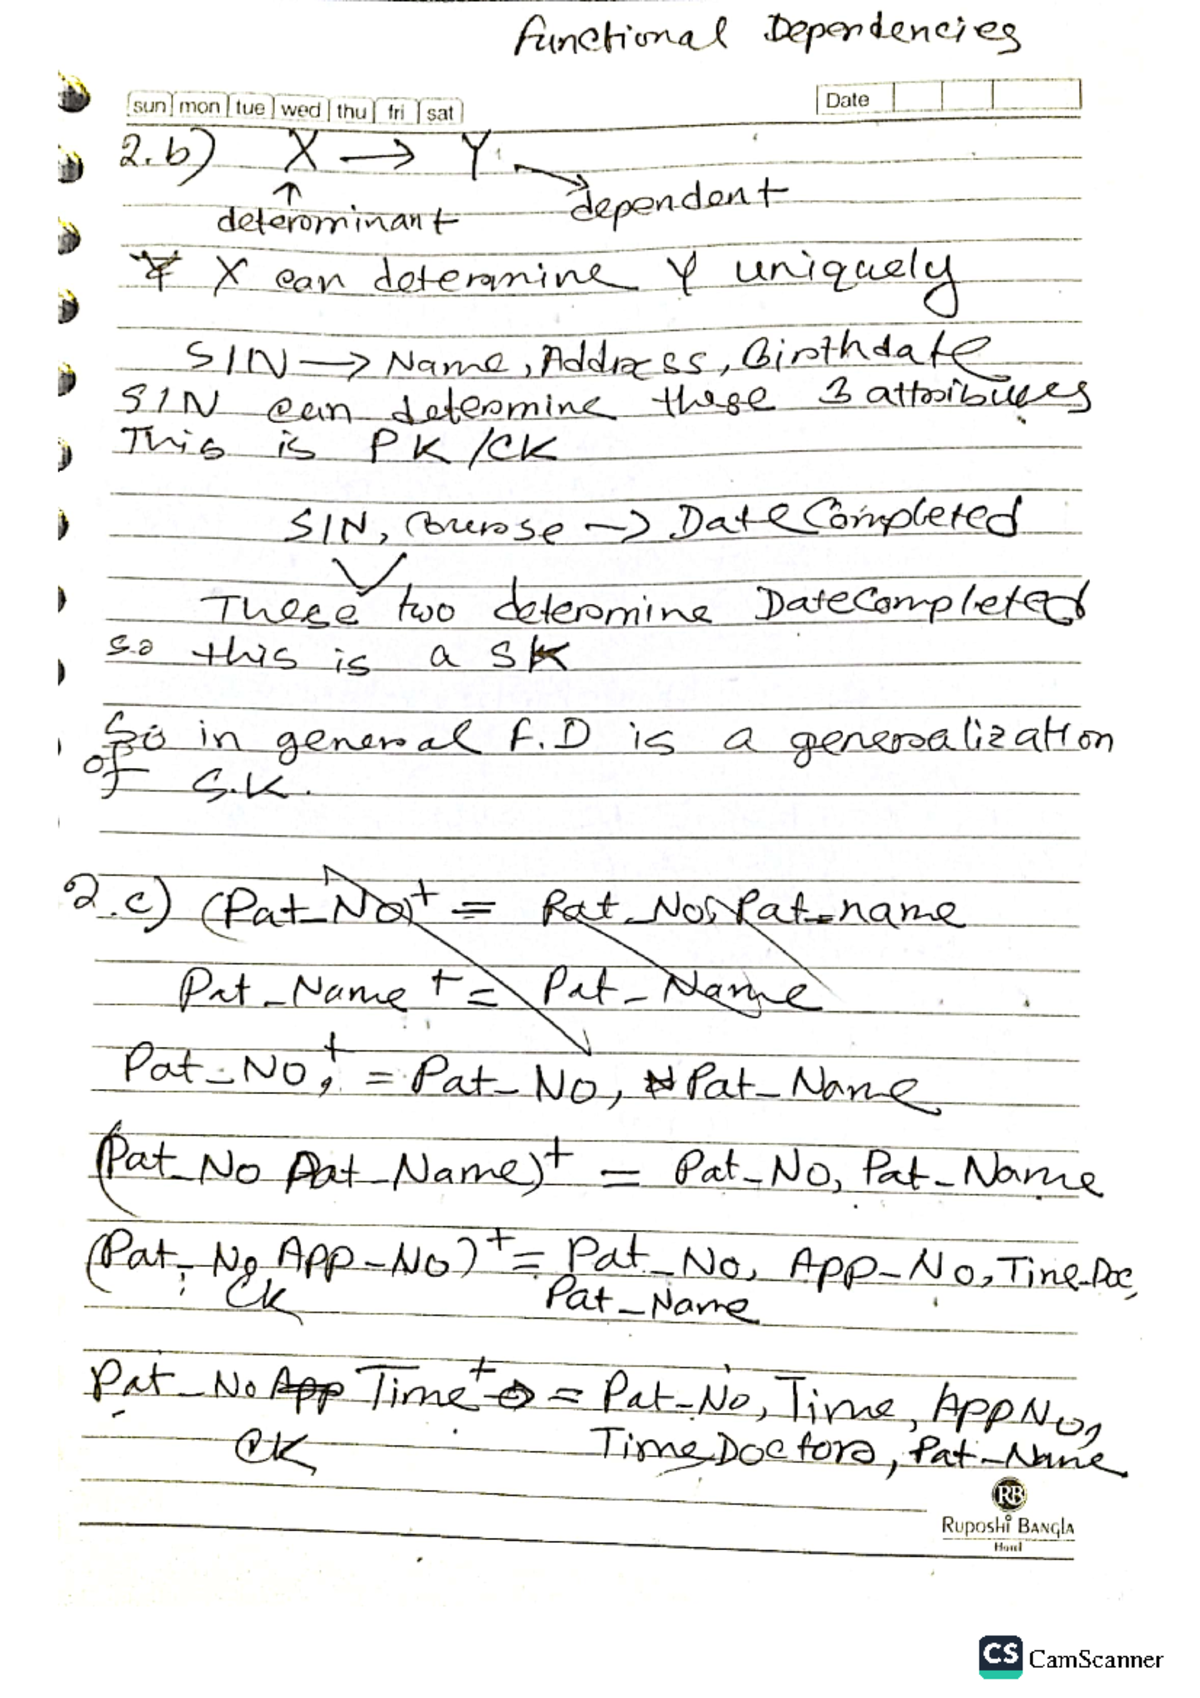 Functional Dependencies
sun mon tue wed thu fri sat
Date
2.b) X → Y
determinant
dependent
X can determine Y uniquely
SIN → Name, Address, Birthdate
SIN can determine these 3 attributes
This is PK/CK
SIN, Course → DateCompleted
These two determine DateCompleted
so this is a SK
So in general F.D is a generalization
of S.K.
2.c) (Pat_No)+ = Pat_No, Pat_name
Pat_Name+ = Pat_Name
Pat_No,+ = Pat_No, Pat_Name
(Pat_No Pat_Name)+ = Pat_No, Pat_Name
(Pat_No App_No)+ = Pat_No, App_No, Time Doc,
CK Pat_Name
Pat_No App Time+ = Pat_No, Time, AppNo,
CK Time Doctor, Pat_Name
RB
Ruposhi Bangla
Hotel
CS CamScanner